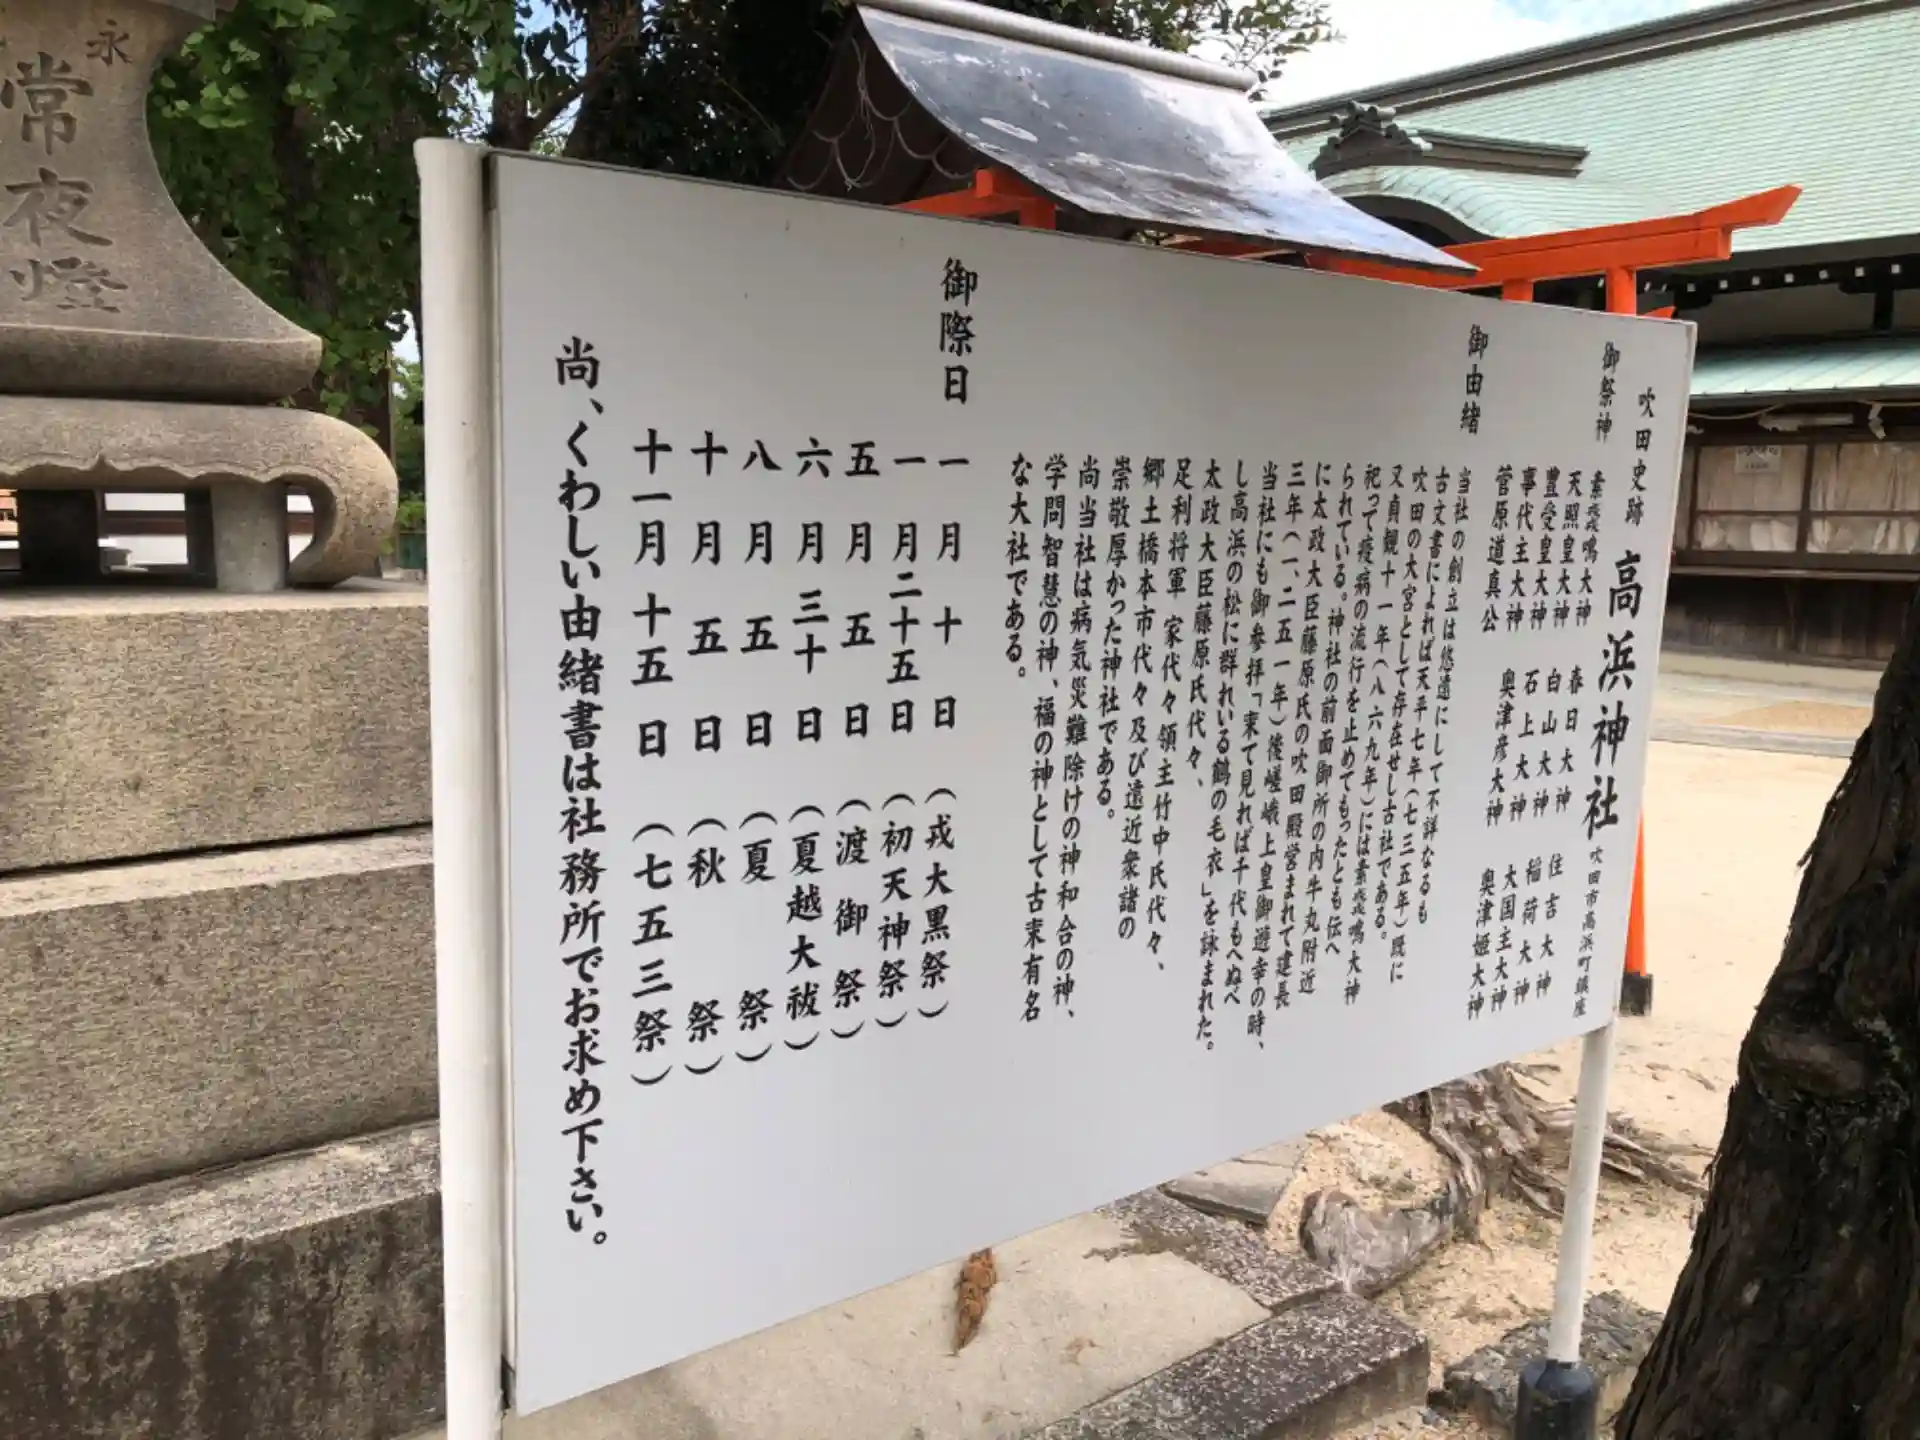 吹田史跡 高浜神社 吹田市高浜町鎮座
御祭神
素戔嗚大神 春日大神 住吉大神
天照皇大神 白山大神 稲荷大神
豊受皇大神 石上大神 大国主大神
事代主大神 奥津彦大神 奥津姫大神
菅原道真公
御由緒
当社の創立は悠遠にして不詳なるも
古文書によれば天平七年(七三五年)既に
吹田の大宮として存在せし古社である。
又貞観十一年(八六九年)には素戔嗚大神
祀って疫病の流行を止めてもったとも伝へ
られている。神社の前面御所の内牛丸附近
に太政大臣藤原氏の吹田殿営まれて建長
三年(一、二五一年)後嵯峨上皇御遊幸の時、
当社にも御参拝「来て見れば千代もへぬべ
し高浜の松に群れいる鶴の毛衣」を詠まれた。
太政大臣藤原氏代々、
足利将軍 家代々領主竹中氏代々、
郷土橋本市代々及び遠近衆諸の
崇敬厚かった神社である。
尚当社は病気災難除けの神和合の神、
学問智慧の神、福の神として古来有名
な大社である。
御際日
一月十日(戎大黒祭)
一月二十五日(初天神祭)
五月五日(渡御祭)
六月三十日(夏越大祓)
八月五日(夏祭)
十月五日(秋祭)
十一月十五日(七五三祭)
尚、くわしい由緒書は社務所でお求め下さい。
永
常夜燈